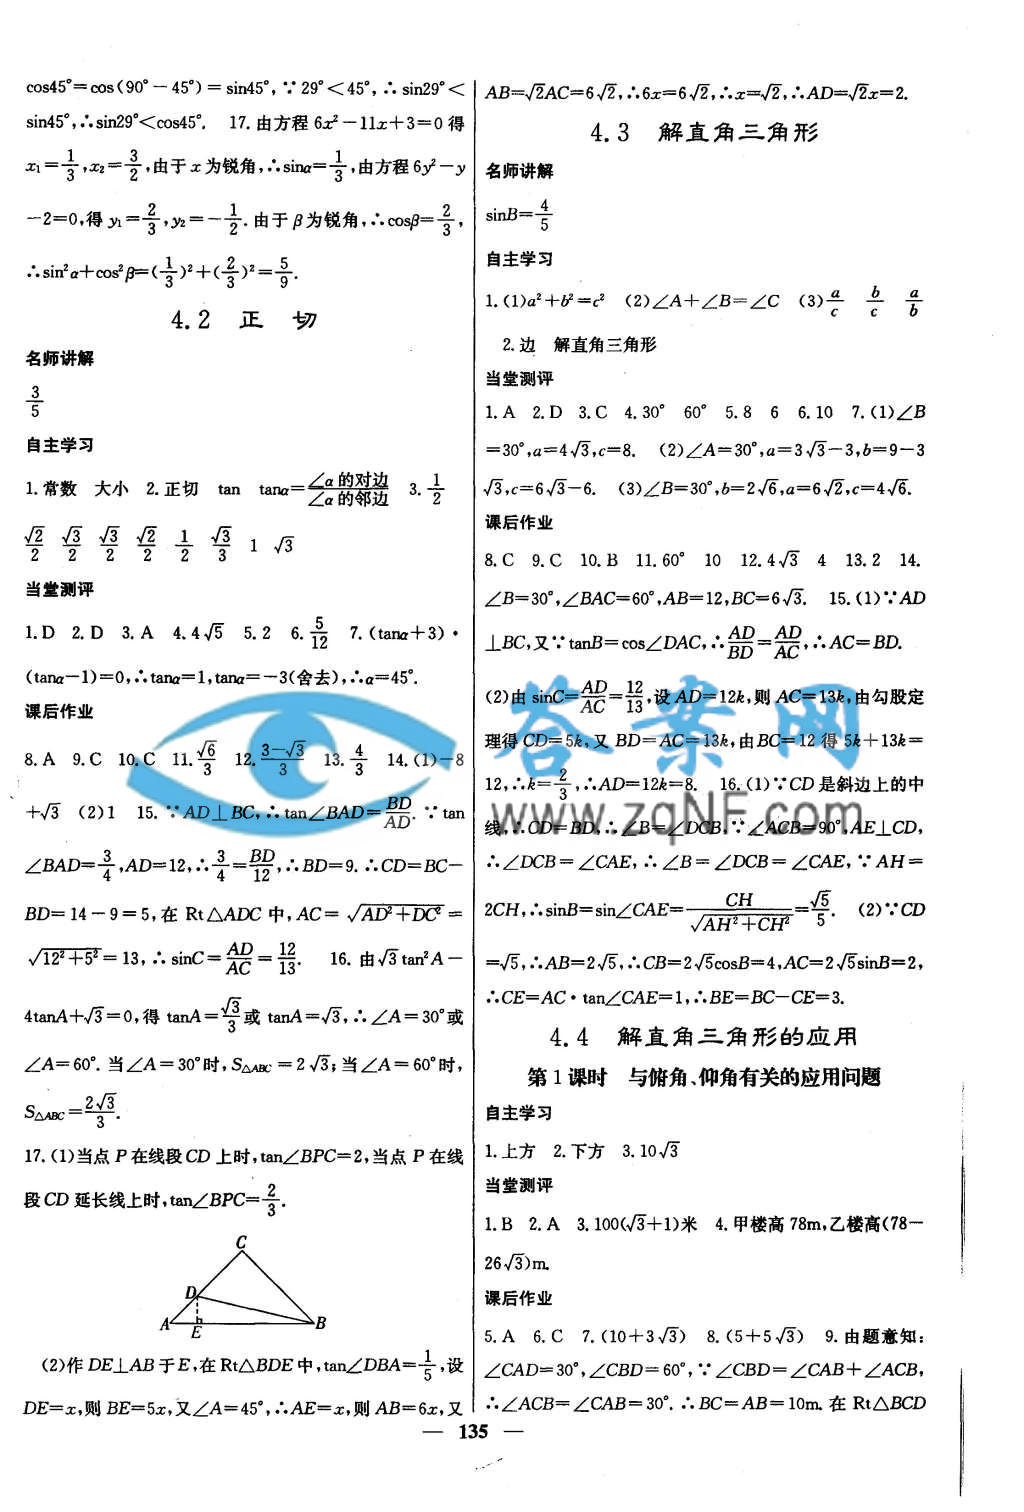 cos45°=cos(90°-45°)=sin45°,∵29°<45°,∴sin29°<
sin45°,∴sin29°<cos45°. 17.由方程6x²-11x+3=0得
x₁=1/3,x₂=3/2,由于x为锐角,∴sinα=1/3,由方程6y²-y
-2=0,得y₁=2/3,y₂=-1/2.由于β为锐角,∴cosβ=2/3,
∴sin²α+cos²β=(1/3)²+(2/3)²=5/9.
4.2 正 切
名师讲解
3/5
自主学习
1.常数 大小 2.正切 tan tanα=∠α的对边/∠α的邻边 3.1/2
√2/2 √3/2 √3/2 √2/2 1/2 √3/3 1 √3
当堂测评
1.D 2.D 3.A 4.4√5 5.2 6.5/12 7.(tanα+3)·
(tanα-1)=0,∴tanα=1,tanα=-3(舍去),∴α=45°.
课后作业
8.A 9.C 10.C 11.√6/3 12.(3-√3)/3 13.4/3 14.(1)-8
+√3 (2)1 15.∵AD⊥BC,∴tan∠BAD=BD/AD.∵tan
∠BAD=3/4,AD=12,∴3/4=BD/12,∴BD=9.∴CD=BC-
BD=14-9=5,在Rt△ADC中,AC=√(AD²+DC²)=
√(12²+5²)=13,∴sinC=AD/AC=12/13. 16.由√3tan²A-
4tanA+√3=0,得tanA=√3/3或tanA=√3,∴∠A=30°或
∠A=60°.当∠A=30°时,S△ABC=2√3;当∠A=60°时,
S△ABC=2√3/3.
17.(1)当点P在线段CD上时,tan∠BPC=2,当点P在线
段CD延长线上时,tan∠BPC=2/3.
C
D
A E B
(2)作DE⊥AB于E,在Rt△BDE中,tan∠DBA=1/5,设
DE=x,则BE=5x,又∠A=45°,∴AE=x,则AB=6x,又
AB=√2AC=6√2,∴6x=6√2,∴x=√2,∴AD=√2x=2.
4.3 解直角三角形
名师讲解
sinB=4/5
自主学习
1.(1)a²+b²=c² (2)∠A+∠B=∠C (3)a/c b/c a/b
2.边 解直角三角形
当堂测评
1.A 2.D 3.C 4.30° 60° 5.8 6 6.10 7.(1)∠B
=30°,a=4√3,c=8. (2)∠A=30°,a=3√3-3,b=9-3
√3,c=6√3-6. (3)∠B=30°,b=2√6,a=6√2,c=4√6.
课后作业
8.C 9.C 10.B 11.60° 10 12.4√3 4 13.2 14.
∠B=30°,∠BAC=60°,AB=12,BC=6√3. 15.(1)∵AD
⊥BC,又∵tanB=cos∠DAC,∴AD/BD=AD/AC,∴AC=BD.
(2)由sinC=AD/AC=12/13,设AD=12k,则AC=13k,由勾股定
理得CD=5k,又BD=AC=13k,由BC=12得5k+13k=
12,∴k=2/3,∴AD=12k=8. 16.(1)∵CD是斜边上的中
线,∴CD=BD,∴∠B=∠DCB,∵∠ACB=90°,AE⊥CD,
∴∠DCB=∠CAE,∴∠B=∠DCB=∠CAE,∵AH=
2CH,∴sinB=sin∠CAE=CH/√(AH²+CH²)=√5/5. (2)∵CD
=√5,∴AB=2√5,∴CB=2√5cosB=4,AC=2√5sinB=2,
∴CE=AC·tan∠CAE=1,∴BE=BC-CE=3.
4.4 解直角三角形的应用
第1课时 与俯角、仰角有关的应用问题
自主学习
1.上方 2.下方 3.10√3
当堂测评
1.B 2.A 3.100(√3+1)米 4.甲楼高78m,乙楼高(78-
26√3)m.
课后作业
5.A 6.C 7.(10+3√3) 8.(5+5√3) 9.由题意知:
∠CAD=30°,∠CBD=60°,∵∠CBD=∠CAB+∠ACB,
∴∠ACB=∠CAB=30°.∴BC=AB=10m.在Rt△BCD
— 135 —
答案网
www.zqNF.com